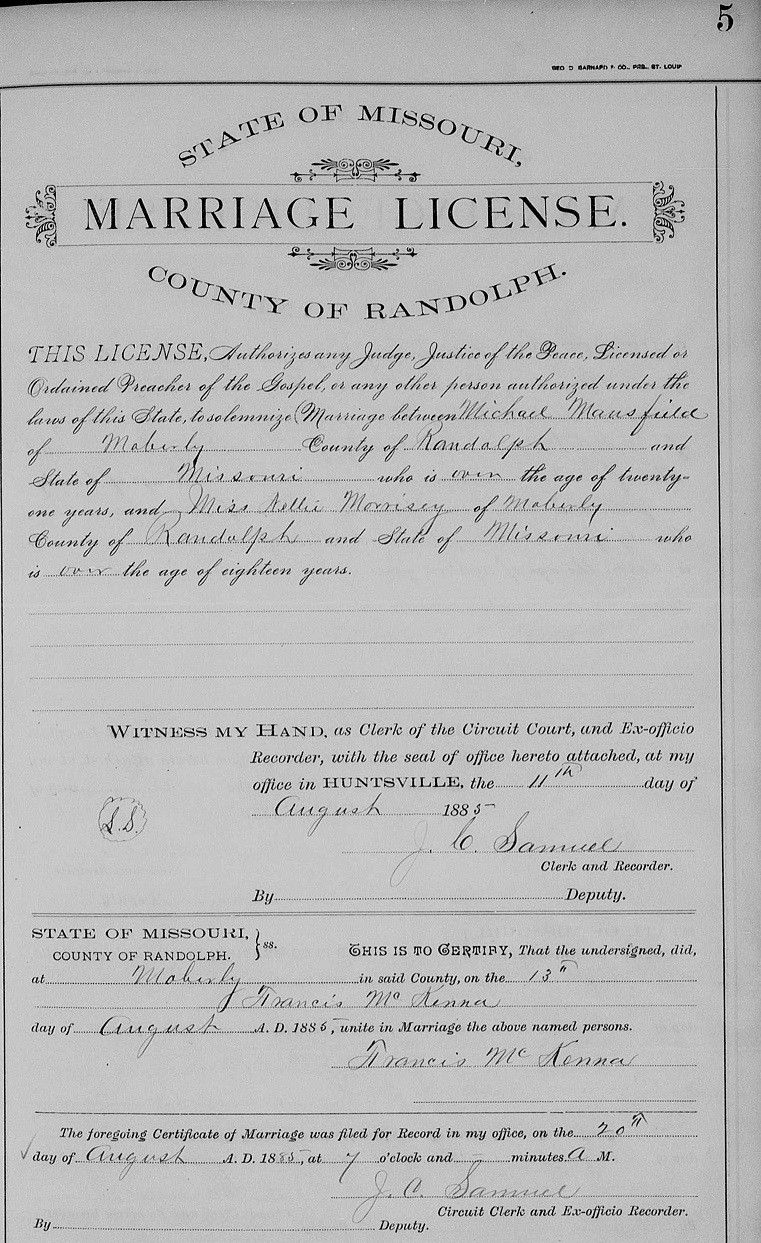 5
GEO. D. BARNARD & CO., PRS., ST. LOUIS
STATE OF MISSOURI,
MARRIAGE LICENSE.
COUNTY OF RANDOLPH.
THIS LICENSE, Authorizes any Judge, Justice of the Peace, Licensed or
Ordained Preacher of the Gospel, or any other person authorized under the
laws of this State, to solemnize Marriage between Michael Mansfield
of Moberly County of Randolph and
State of Missouri who is over the age of twenty-
one years, and Miss Nellie Morrisey of Moberly
County of Randolph and State of Missouri who
is over the age of eighteen years.
WITNESS MY HAND, as Clerk of the Circuit Court, and Ex-officio
Recorder, with the seal of office hereto attached, at my
office in HUNTSVILLE, the 11th day of
August 1885
L.S.
J. C. Samuel
Clerk and Recorder.
By Deputy.
STATE OF MISSOURI, } ss.
COUNTY OF RANDOLPH. THIS IS TO CERTIFY, That the undersigned, did,
at Moberly in said County, on the 13"
Francis McKenna
day of August A. D. 1885, unite in Marriage the above named persons.
Francis McKenna
The foregoing Certificate of Marriage was filed for Record in my office, on the 20"
day of August A. D. 1885, at 7 o'clock and - minutes A M.
J. C. Samuel
Circuit Clerk and Ex-officio Recorder.
By Deputy.